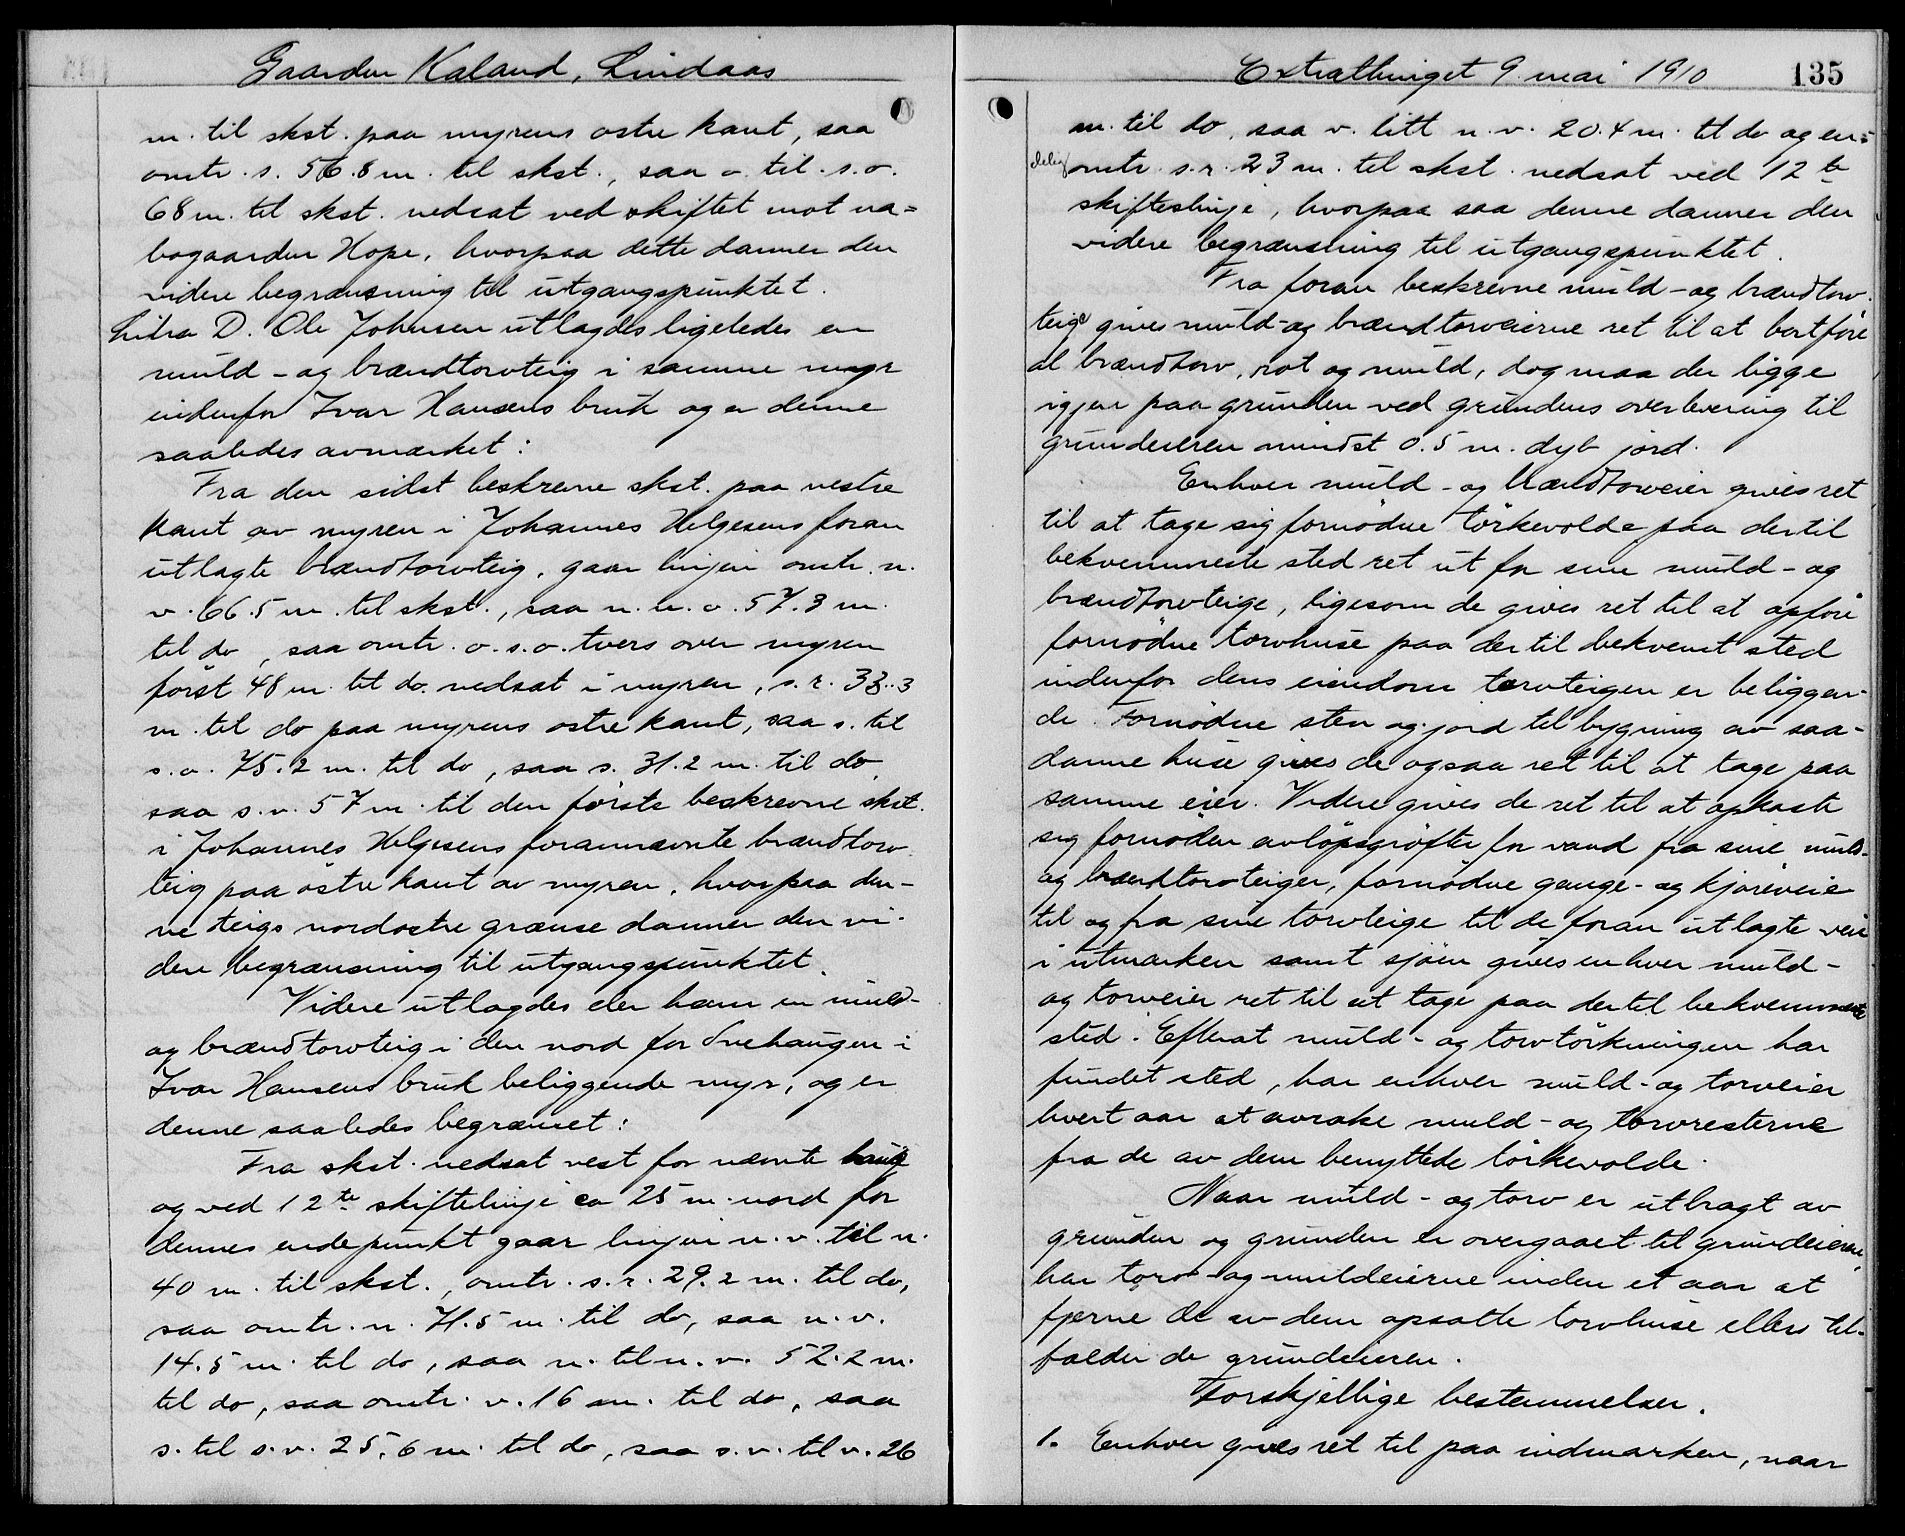 Gaarden Kaland, Lindaas
m. til skst. paa myrens østre kant, saa
omtr. s. 56.8 m. til skst., saa o. til s.o.
68 m. til skst. nedsat ved skiftet mot na=
bogaarden Hope, hvorpaa dette danner den
videre begrænsning til utgangspunktet.
Litra D. Ole Johnsen utlagdes ligeledes en
muld- og brændtorvteig i samme myr
indenfor Ivar Hansens bruk og er denne
saaledes avmærket:
Fra den sidst beskrevne skst. paa vestre
kant av myren i Johannes Helgesens foran
utlagte brændtorvteig, gaar linjen omtr. n.
v. 66.5 m. til skst., saa n. n. o. 57.3 m.
til do, saa omtr. o. s. o. tvers over myren
först 48 m. til do. nedsat i myren, s. r. 33.3
m. til do paa myrens østre kant, saa s. til
s.o. 75.2 m. til do, saa s. 31.2 m. til do,
saa s.v. 57 m. til den første beskrevne skst.
i Johannes Helgesens forannævnte brændtorv
teig paa östre kant av myren, hvorpaa den-
ne teigs nordostre grænse danner den vi-
dere begrænsning til utgangspunktet.
Videre utlagdes der ham en muld-
og brændtorvteig i den nord for Snehaugen i
Ivar Hansens bruk beliggende myr, og er
denne saaledes begrænset:
Fra skst. nedsat vest for nævnte haug
og ved 12te skiftelinje ca 25 m. nord for
dennes endepunkt gaar linjen n. v. til n.
40 m. til skst., omtr. s. r. 29.2 m. til do,
saa omtr. n. 71.5 m. til do, saa n. v.
14.5 m. til do, saa n. til n. v. 52.2 m.
til do, saa omtr. v. 16 m. til do, saa
s. til s. v. 25.6 m. til do, saa s.v. til v. 26
Extrathinget 9. mai 1910 135
m. til do, saa v. litt n. v. 20.4 m. til do og en=
delig omtr. s. r. 23 m. til skst. nedsat ved 12te
skifteslinje, hvorpaa saa denne danner den
videre begrænsning til utgangspunktet.
Fra foran beskrevne muld- og brændtorv
teige gives muld- og brændtorveierne ret til at bortföre
al brændtorv, rot og muld, dog maa der ligge
igjen paa grunden ved grundens overlevering til
grundeieren mindst 0.5 m. dyb jord.
Enhver muld- og brændtorveier gives ret
til at tage sig fornödne törkevolde paa dertil
bekvemmeste sted ret ut for sine muld- og
brændtorvteige, ligesom de gives ret til at opföre
fornödne torvhuse paa der til bekvemt sted
indenfor dens eiendom torvteigen er beliggen-
de. Fornödne sten og jord til bygning av saa-
danne huse gives de ogsaa ret til at tage paa
samme eier. Videre gives de ret til at opkaste
sig fornöden avlöpsgröfter for vand fra sine muld-
og brændtorvteiger, fornödne gange- og kjöreveie
til og fra sine torvteige til de foran utlagte veie
i utmarken samt sjöen gives enhver muld-
og torveier ret til at tage paa dertil bekvemmeste
sted. Efterat muld- og torvtörkningen har
fundet sted, har enhver muld- og torveier
hvert aar at avrake muld- og torvresterne
fra de av dem benyttede törkevolde.
Naar muld- og torv er utbragt av
grunden og grunden er overgaaet til grundeierne,
har torv- og muldeierne inden et aar at
fjerne de av dem opsatte torvhuse ellers til-
falder de grundeieren.
Forskjellige bestemmelser.
1. Enhver gives ret til paa indmarken, naar